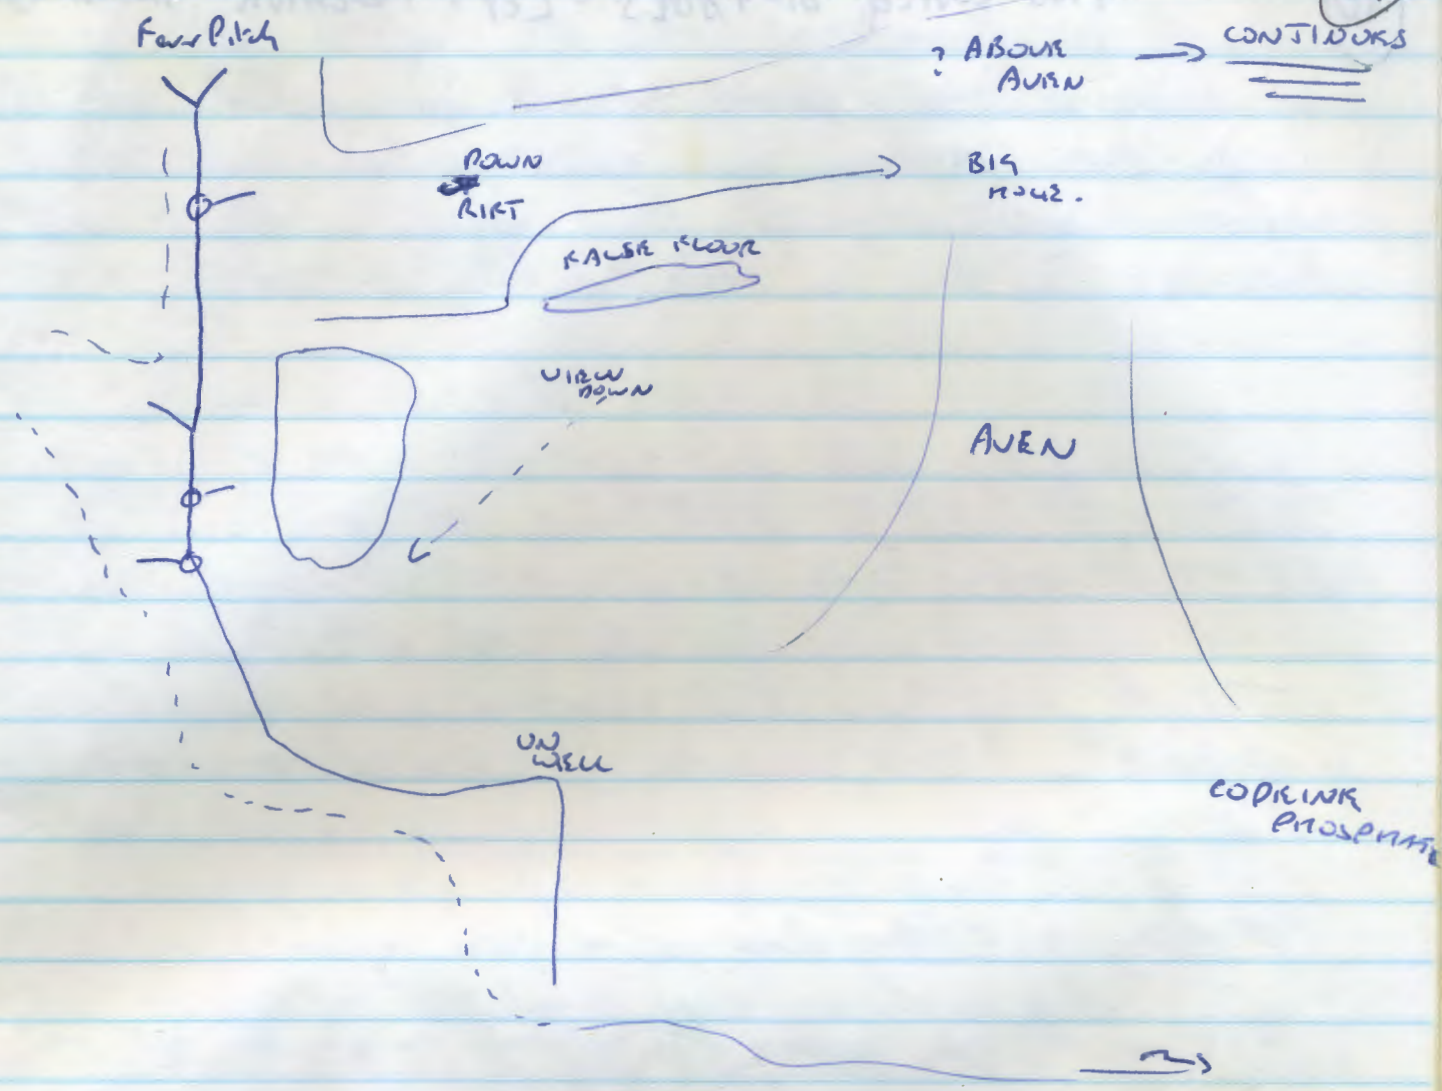 Fever Pitch
? ABOVE
AVEN
CONTINUES
DOWN
RIFT
BIG
HOLE.
FALSE FLOOR
VIEW
DOWN
AVEN
UN
WELL
CODEINE
PHOSPHATE